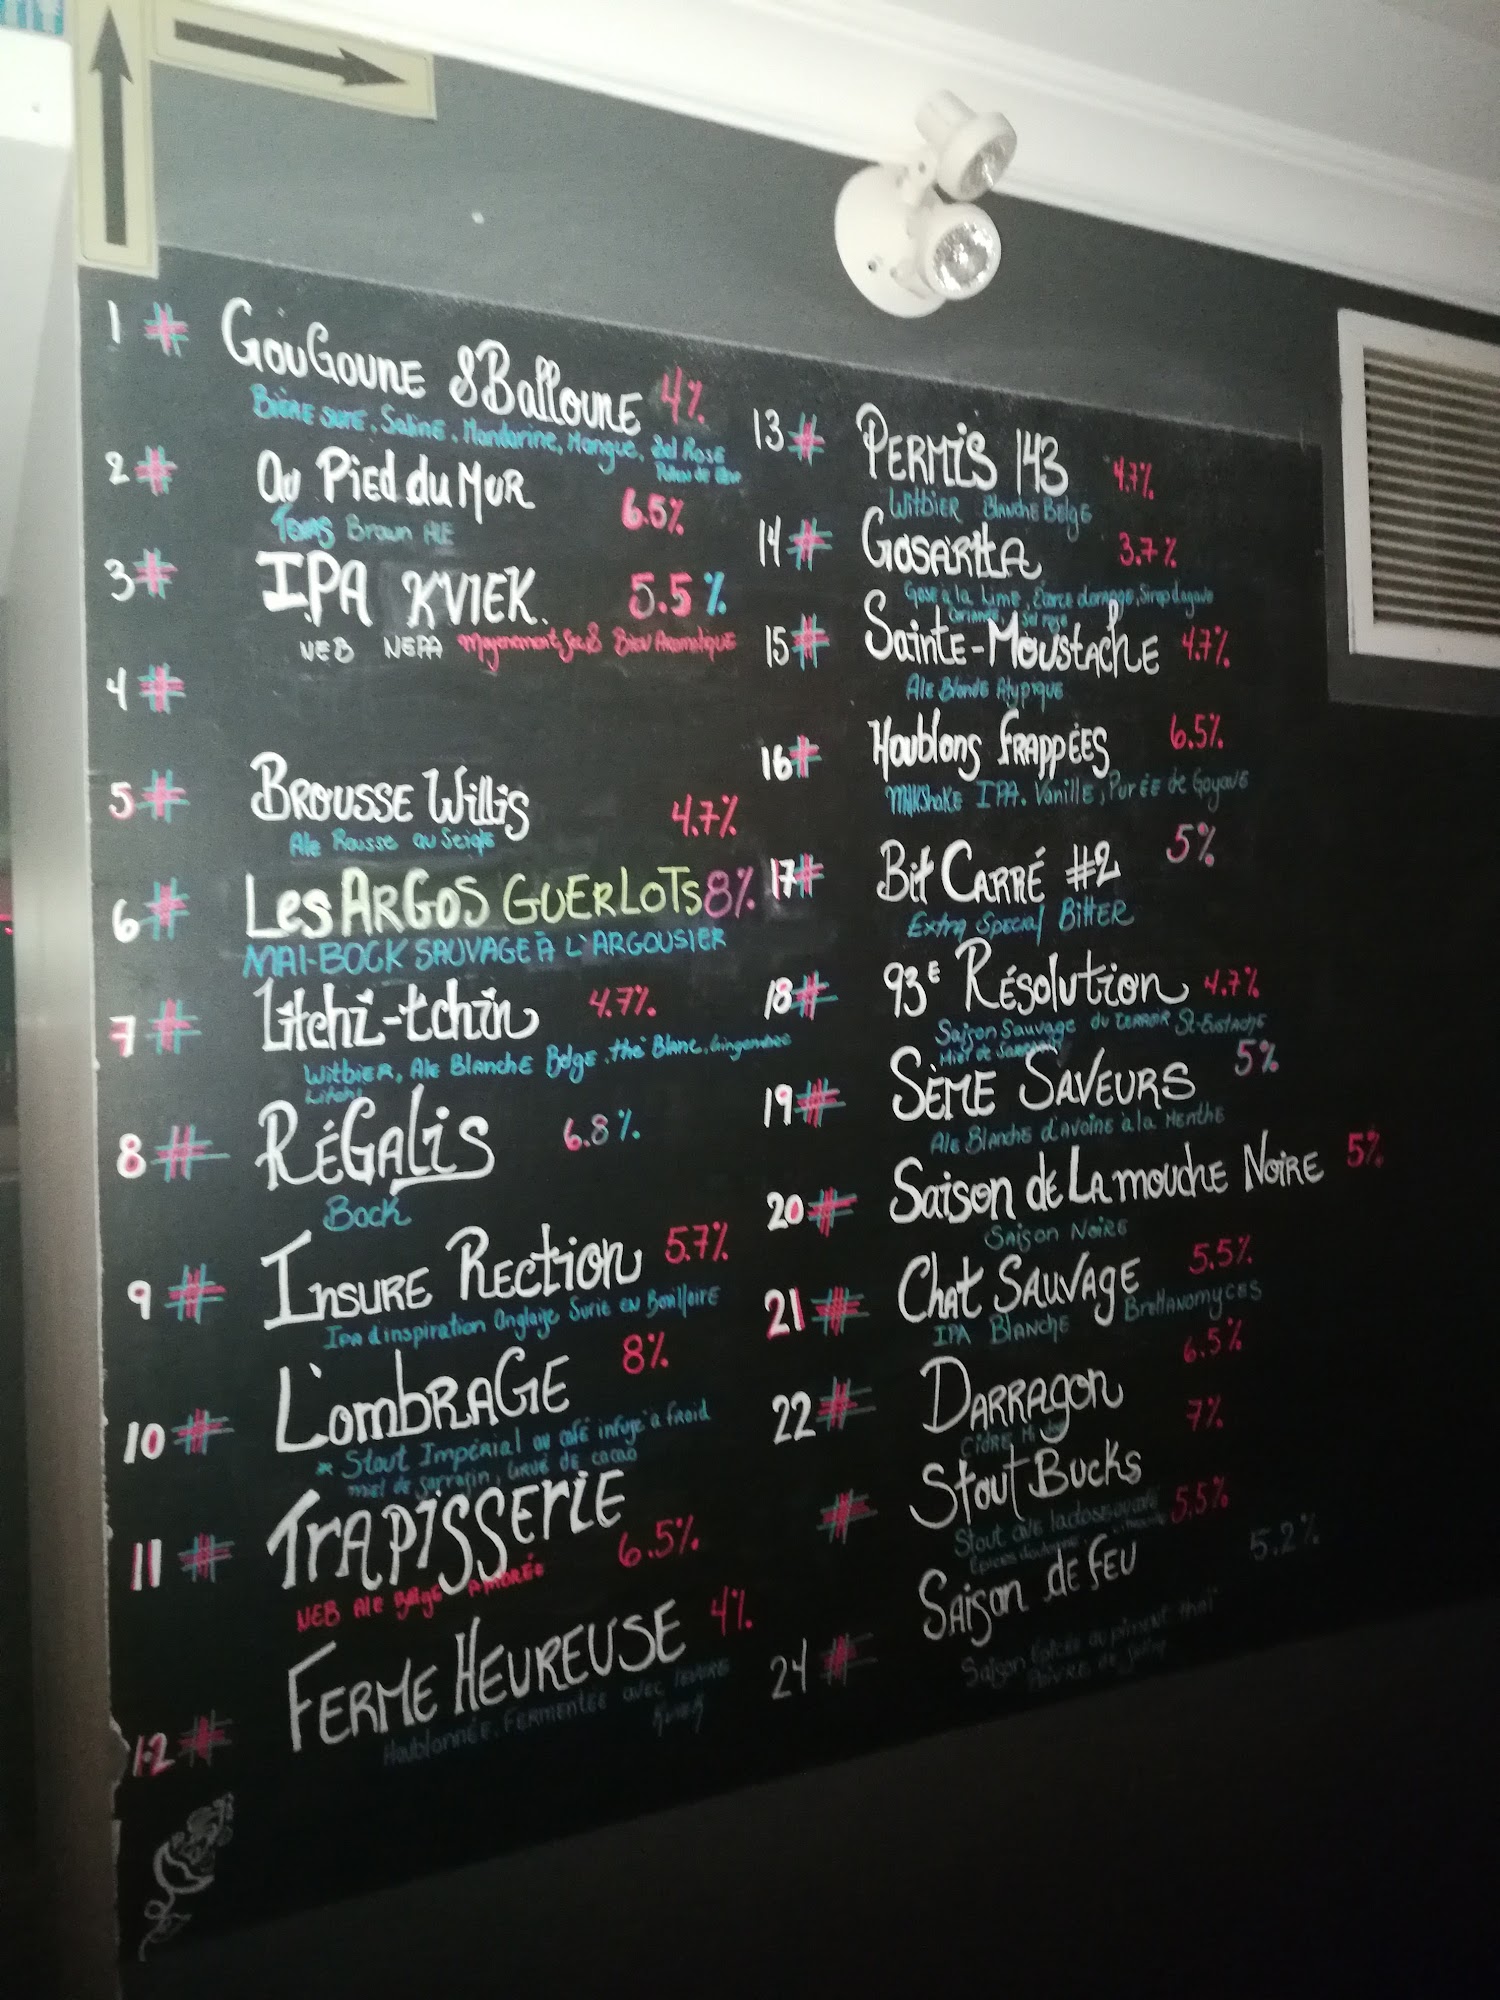 1 # GouGoune & Balloune 4%
Bière sure, Saline, Mandarine, Mangue, Sel Rose
2 # Au Pied du Mur 6.5%
Brown Ale
3 # IPA KVIEK 5.5%
NEB NEPA Moyennement Bien Aromatique
4 #
5 # Brousse Willis 4.7%
Ale Rousse au Seigle
6 # Les ARGOS GUERLOTS 8%
MAI-BOCK SAUVAGE À L'ARGOUSIER
7 # Litchi-tchin 4.7%
Witbier, Ale Blanche Belge, thé Blanc, Gingembre
Litchi
8 # RÉGALIS 6.8%
Bock
9 # INSURE RECTION 5.7%
Ipa d'inspiration Anglaise Surie en Bouilloire
10 # L'OMBRAGE 8%
* Stout Impérial au café infusé à froid
miel de sarrasin, Grué de cacao
11 # TRAPISSERIE 6.5%
NEB Ale Belge AMBRÉE
12 # FERME HEUREUSE 4%
Houblonnée, Fermentée avec levure
Kviek
13 # PERMIS 143 4.7%
Witbier Blanche Belge
14 # GOSARITA 3.7%
Gose à la Lime, Écorce d'orange, Sirop d'agave
Coriandre, Sel rose
15 # Sainte-Moustache 4.7%
Ale Blonde Atypique
16 # Houblons frappées 6.5%
Milkshake IPA. Vanille, Purée de Goyave
17 # Bit Carré #2 5%
Extra Special Bitter
18 # 93E Résolution 4.7%
Saison Sauvage du terroir St-Eustache
Miel de Sarrasin
19 # SÈME SAVEURS 5%
Ale Blanche d'avoine à la Menthe
20 # Saison de La mouche Noire 5%
Saison Noire
21 # Chat SAUVAGE 5.5%
IPA Blanche Brettanomyces
22 # DARRAGON 6.5%
Cidre
# Stout Bucks 7%
Stout lactose 5,5%
24 # Saison de feu 5.2%
Saison Épicée au piment thaï
Poivre de